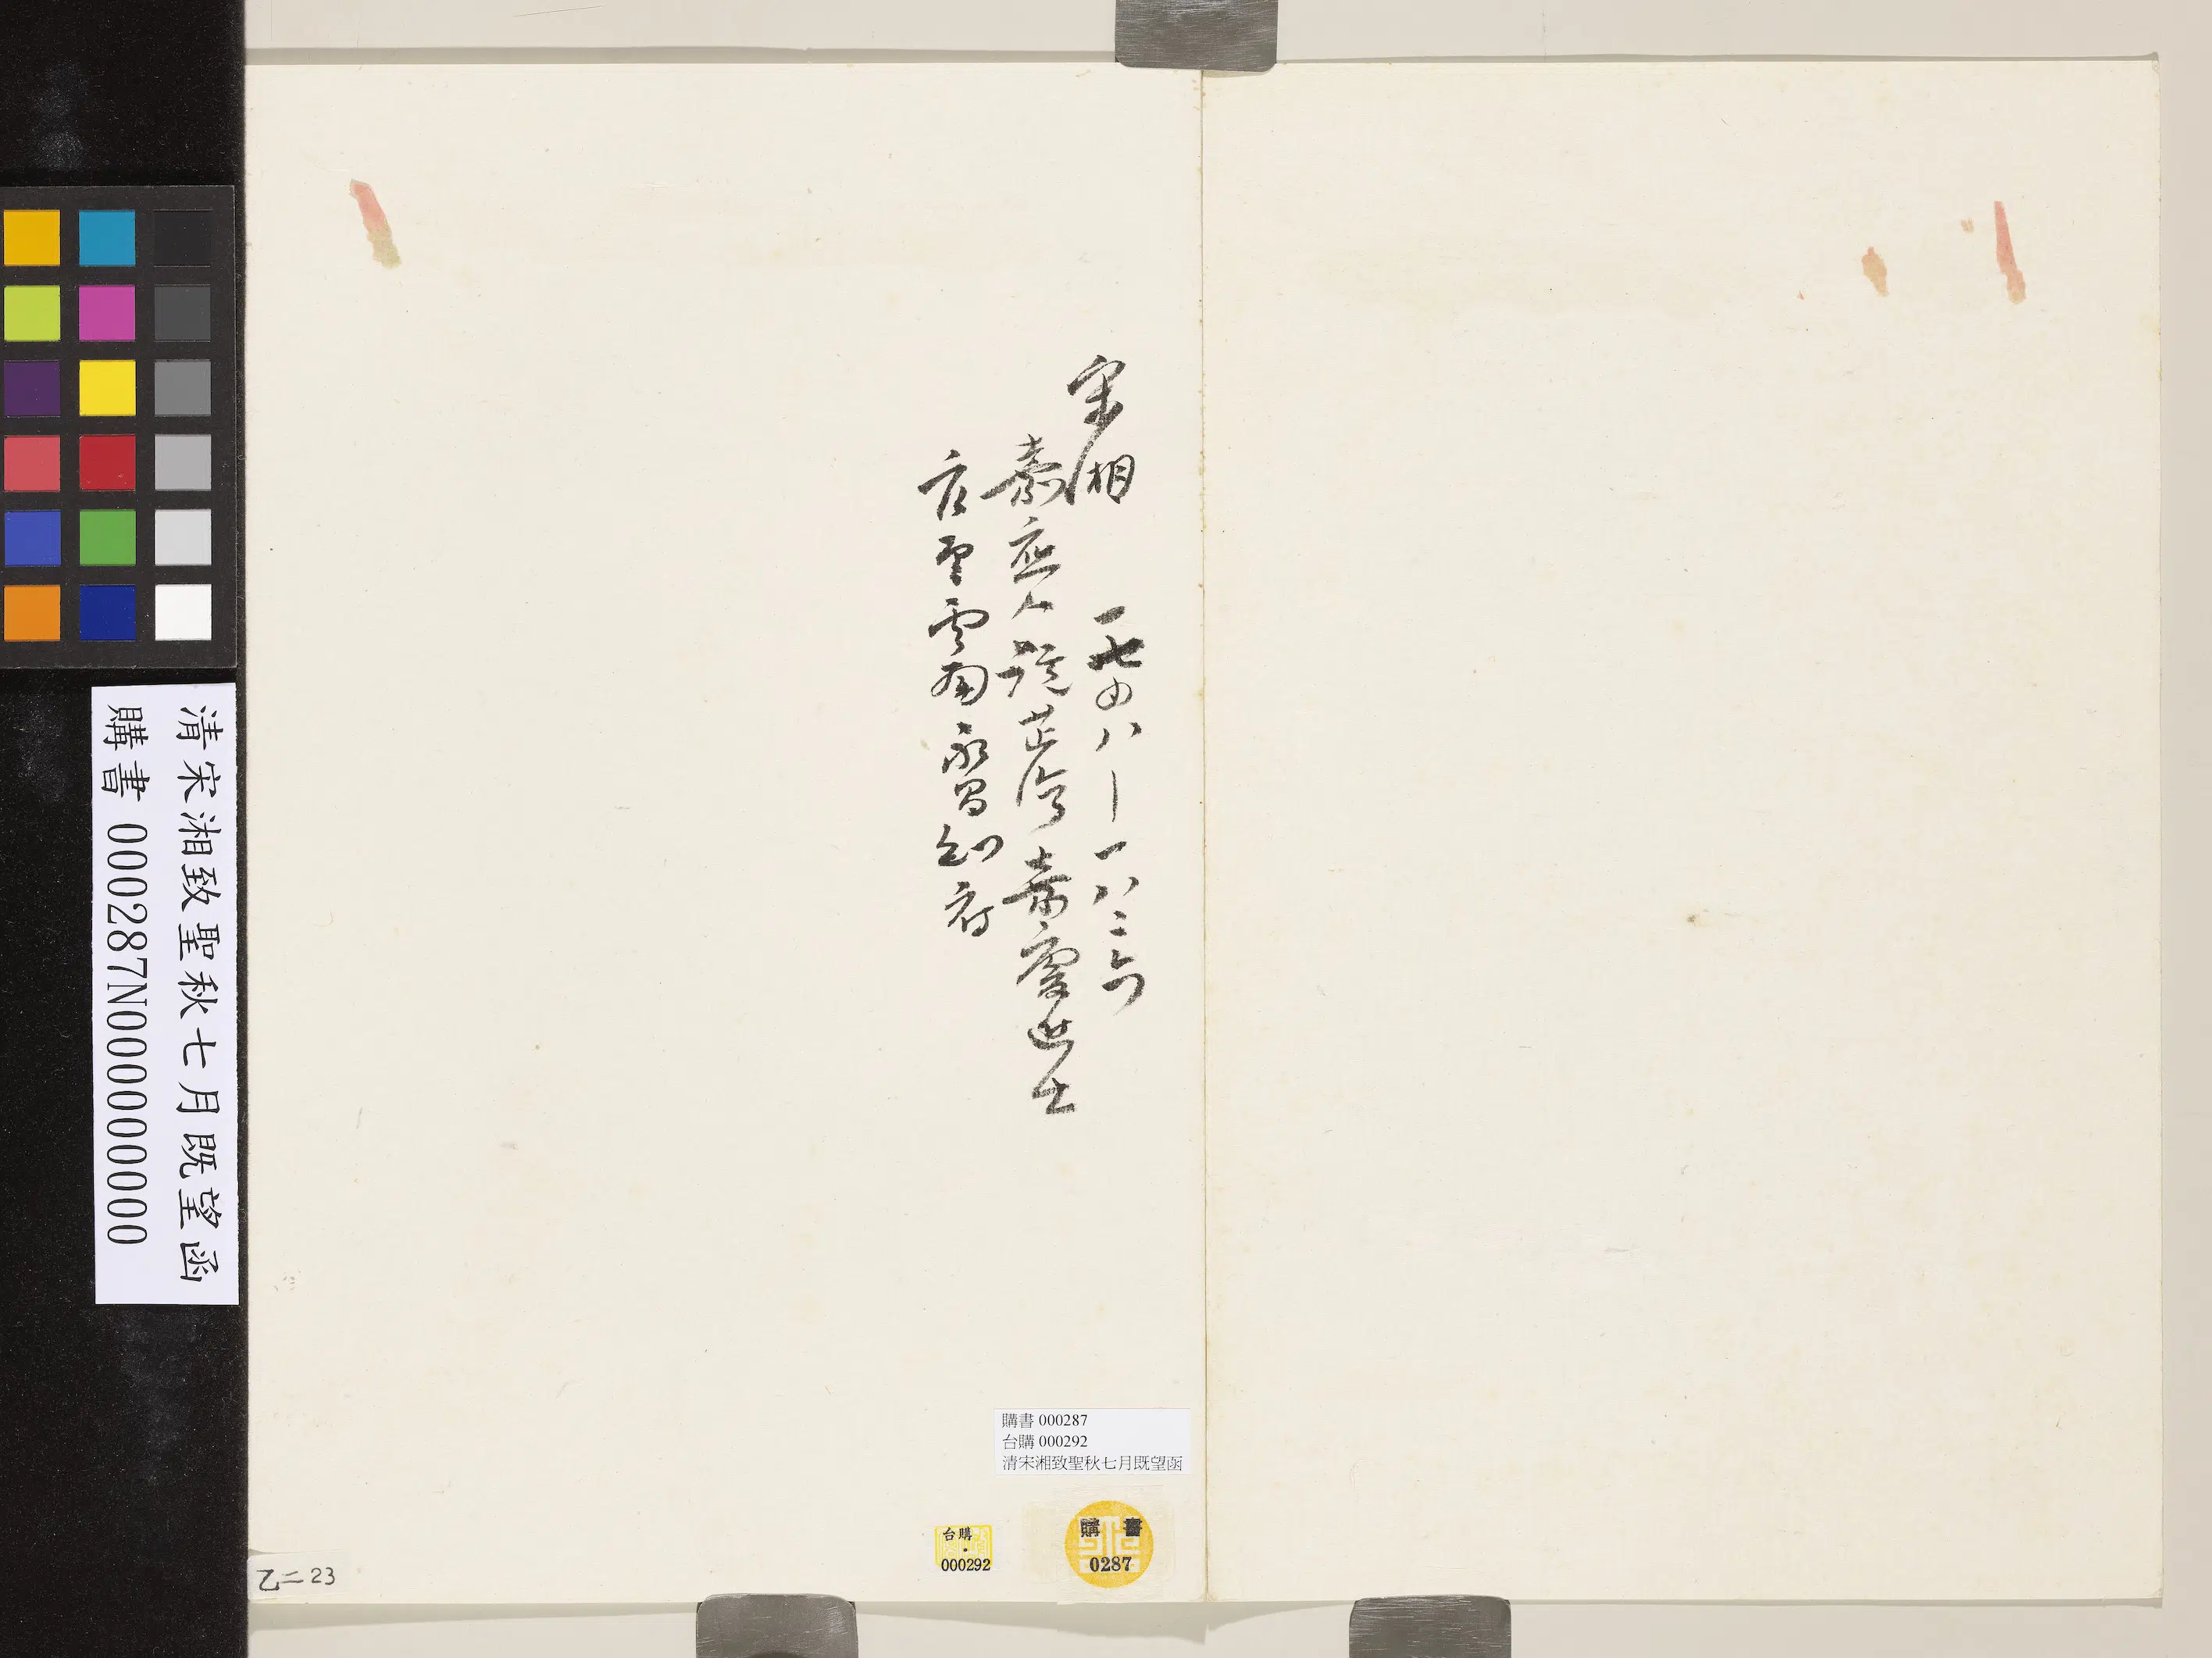 宋湘 一七四八—一八二六
嘉應人 號芷灣 嘉慶進士
雲南永昌知府
清宋湘致聖秋七月既望函
購書 000287N000000000
購書 000287
台購 000292
清宋湘致聖秋七月既望函
購書
0287
台購
000292
乙二23